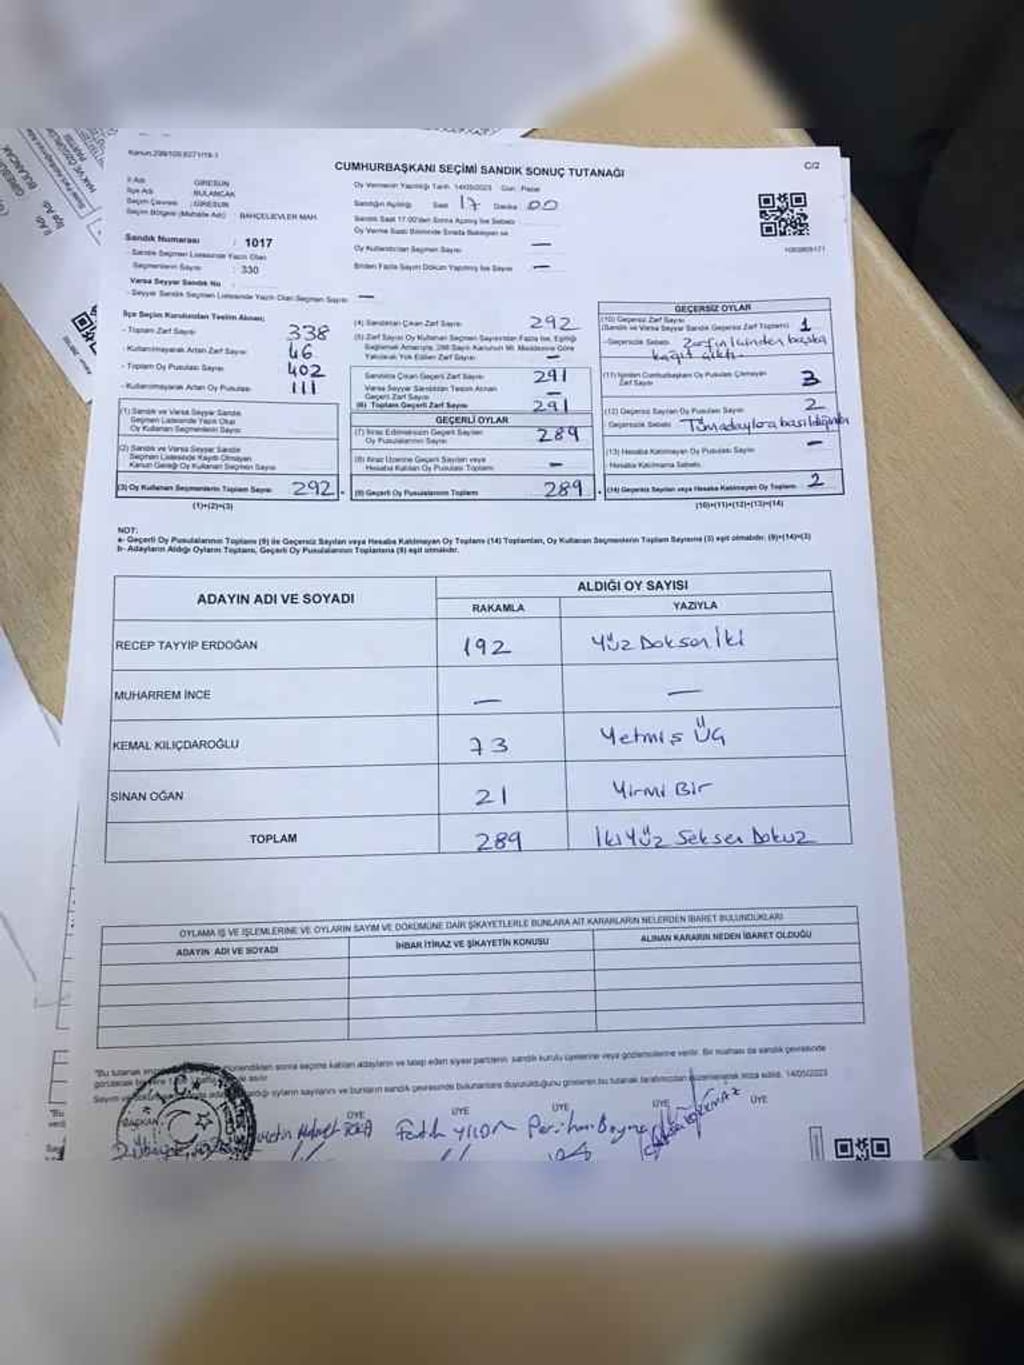 Kanun:298/105,6271/19-1
CUMHURBAŞKANI SEÇİMİ SANDIK SONUÇ TUTANAĞI
C/2
İl Adı : GİRESUN
İlçe Adı : BULANCAK
Seçim Çevresi : GİRESUN
Seçim Bölgesi (Mahalle Adı) : BAHÇELİEVLER MAH.
Sandık Numarası : 1017
- Sandık Seçmen Listesinde Yazılı Olan
Seçmenlerin Sayısı : 330
Varsa Seyyar Sandık No :
- Seyyar Sandık Seçmen Listesinde Yazılı Olan Seçmen Sayısı : —
Oy Vermenin Yapıldığı Tarih: 14/05/2023 Gün: Pazar
Sandığın Açıldığı Saat 17 Dakika 00
Sandık Saat 17.00'den Sonra Açılmış İse Sebebi
Oy Verme Saati Bitiminde Sırada Bekleyen ve
Oy Kullandırılan Seçmen Sayısı —
Birden Fazla Sayım Döküm Yapılmış İse Sayısı —
İlçe Seçim Kurulundan Teslim Alınan;
- Toplam Zarf Sayısı 338
- Kullanılmayarak Artan Zarf Sayısı 46
- Toplam Oy Pusulası Sayısı 402
- Kullanılmayarak Artan Oy Pusulası 111
(1) Sandık ve Varsa Seyyar Sandık
Seçmen Listesinde Yazılı Olup
Oy Kullanan Seçmenlerin Sayısı
(2) Sandık ve Varsa Seyyar Sandık
Seçmen Listesinde Kayıtlı Olmayan
Kanun Gereği Oy Kullanan Seçmen Sayısı
(3) Oy Kullanan Seçmenlerin Toplam Sayısı 292
(1)+(2)=(3)
(4) Sandıktan Çıkan Zarf Sayısı 292
(5) Zarf Sayısı Oy Kullanan Seçmen Sayısından Fazla İse, Eşitliği
Sağlamak Amacıyla, 298 Sayılı Kanunun 98. Maddesine Göre
Yakılarak Yok Edilen Zarf Sayısı —
Sandıkta Çıkan Geçerli Zarf Sayısı 291
Varsa Seyyar Sandıktan Teslim Alınan
Geçerli Zarf Sayısı —
(6) Toplam Geçerli Zarf Sayısı 291
GEÇERLİ OYLAR
(7) İtiraz Edilmeksizin Geçerli Sayılan
Oy Pusulalarının Sayısı 289
(8) İtiraz Üzerine Geçerli Sayılan veya
Hesaba Katılan Oy Pusulası Toplamı —
(9) Geçerli Oy Pusulalarının Toplamı 289
GEÇERSİZ OYLAR
(10) Geçersiz Zarf Sayısı
(Sandık ve Varsa Seyyar Sandık Geçersiz Zarf Toplamı) 1
-Geçersizlik Sebebi Zarfın İçinden başka
kağıt çıktı
(11) İçinden Cumhurbaşkanı Oy Pusulası Çıkmayan
Zarf Sayısı 3
(12) Geçersiz Sayılan Oy Pusulası Sayısı 2
Geçersizlik Sebebi Tüm adaylara basıldığından
(13) Hesaba Katılmayan Oy Pusulası Sayısı —
-Hesaba Katılmama Sebebi
(14) Geçersiz Sayılan veya Hesaba Katılmayan Oy Toplamı 2
(10)+(11)+(12)+(13)=(14)
NOT:
a- Geçerli Oy Pusulalarının Toplamı (9) ile Geçersiz Sayılan veya Hesaba Katılmayan Oy Toplamı (14) Toplamları, Oy Kullanan Seçmenlerin Toplam Sayısına (3) eşit olmalıdır. (9)+(14)=(3)
b- Adayların Aldığı Oyların Toplamı, Geçerli Oy Pusulalarının Toplamına (9) eşit olmalıdır.
ADAYIN ADI VE SOYADI
ALDIĞI OY SAYISI
RAKAMLA YAZIYLA
RECEP TAYYİP ERDOĞAN 192 Yüz Doksan İki
MUHARREM İNCE — —
KEMAL KILIÇDAROĞLU 73 Yetmiş Üç
SİNAN OĞAN 21 Yirmi Bir
TOPLAM 289 İki Yüz Seksen Dokuz
OYLAMA İŞ VE İŞLEMLERİNE VE OYLARIN SAYIM VE DÖKÜMÜNE DAİR ŞİKAYETLERLE BUNLARA AİT KARARLARIN NELERDEN İBARET BULUNDUKLARI
ADAYIN ADI VE SOYADI İHBAR İTİRAZ VE ŞİKAYETİN KONUSU ALINAN KARARIN NEDEN İBARET OLDUĞU
sonra seçime katılan adayların ve talep eden siyasi partilerin sandık kurulu üyelerine veya gözlemcilerine verilir. Bir nüshası da sandık çevresinde
oyların sayılarını ve bunların sandık çevresinde bulunanlara duyurulduğunu gösteren bu tutanak tarafımızdan düzenlenerek imza edildi. 14/05/2023
BAŞKAN ÜYE ÜYE ÜYE ÜYE ÜYE
Fatih